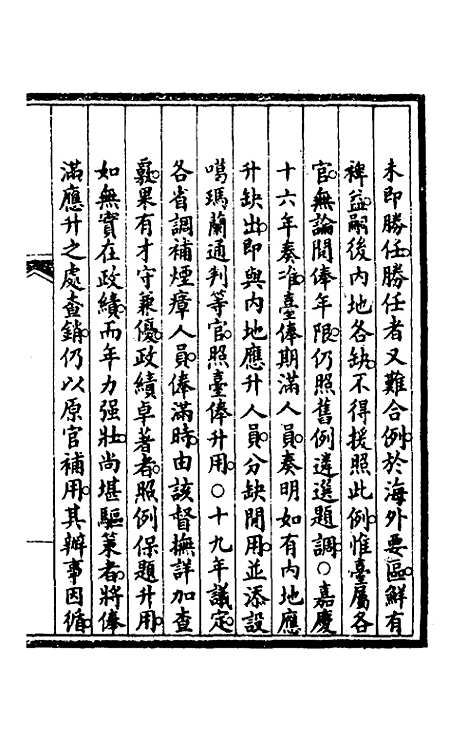 未即勝任。勝任者又難合例。於海外要區。鮮有
裨益。嗣後內地各缺。不得援照此例。惟臺屬各
官。無論閒俸年限。仍照舊例遴選題調。○嘉慶
十六年奏准。臺俸期滿人員。奏明如有內地應
升缺出。即與內地應升人員。分缺閒用。並添設
噶瑪蘭通判等官。照臺俸升用。○十九年議定。
各省調補煙瘴人員。俸滿時。由該督撫詳加查
覈。果有才守兼優。政績卓著者。照例保題升用。
如無實在政績。而年力强壯。尚堪驅策者。將俸
滿應升之處查銷。仍以原官補用。其辦事因循。